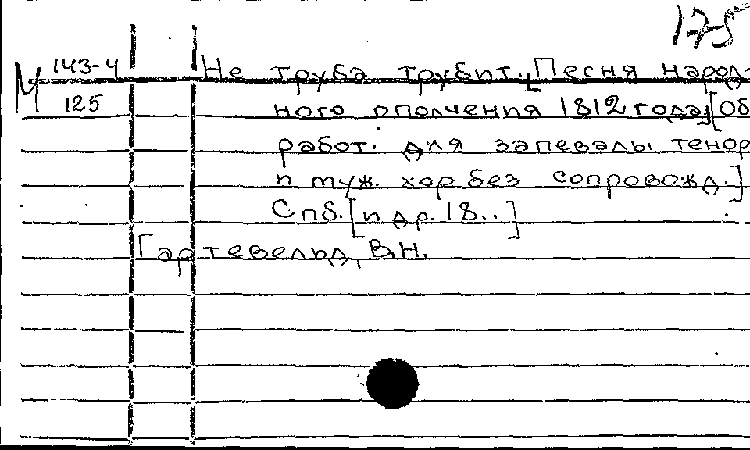 125
М 143-4
125
Не труба трубит. [Песня народ-
ного ополчения 1812 года] [Об
работ. для запевалы тенор
и муж. хор без сопровожд.]
Спб. [и др. 18..]
Гартевельд, В.Н.